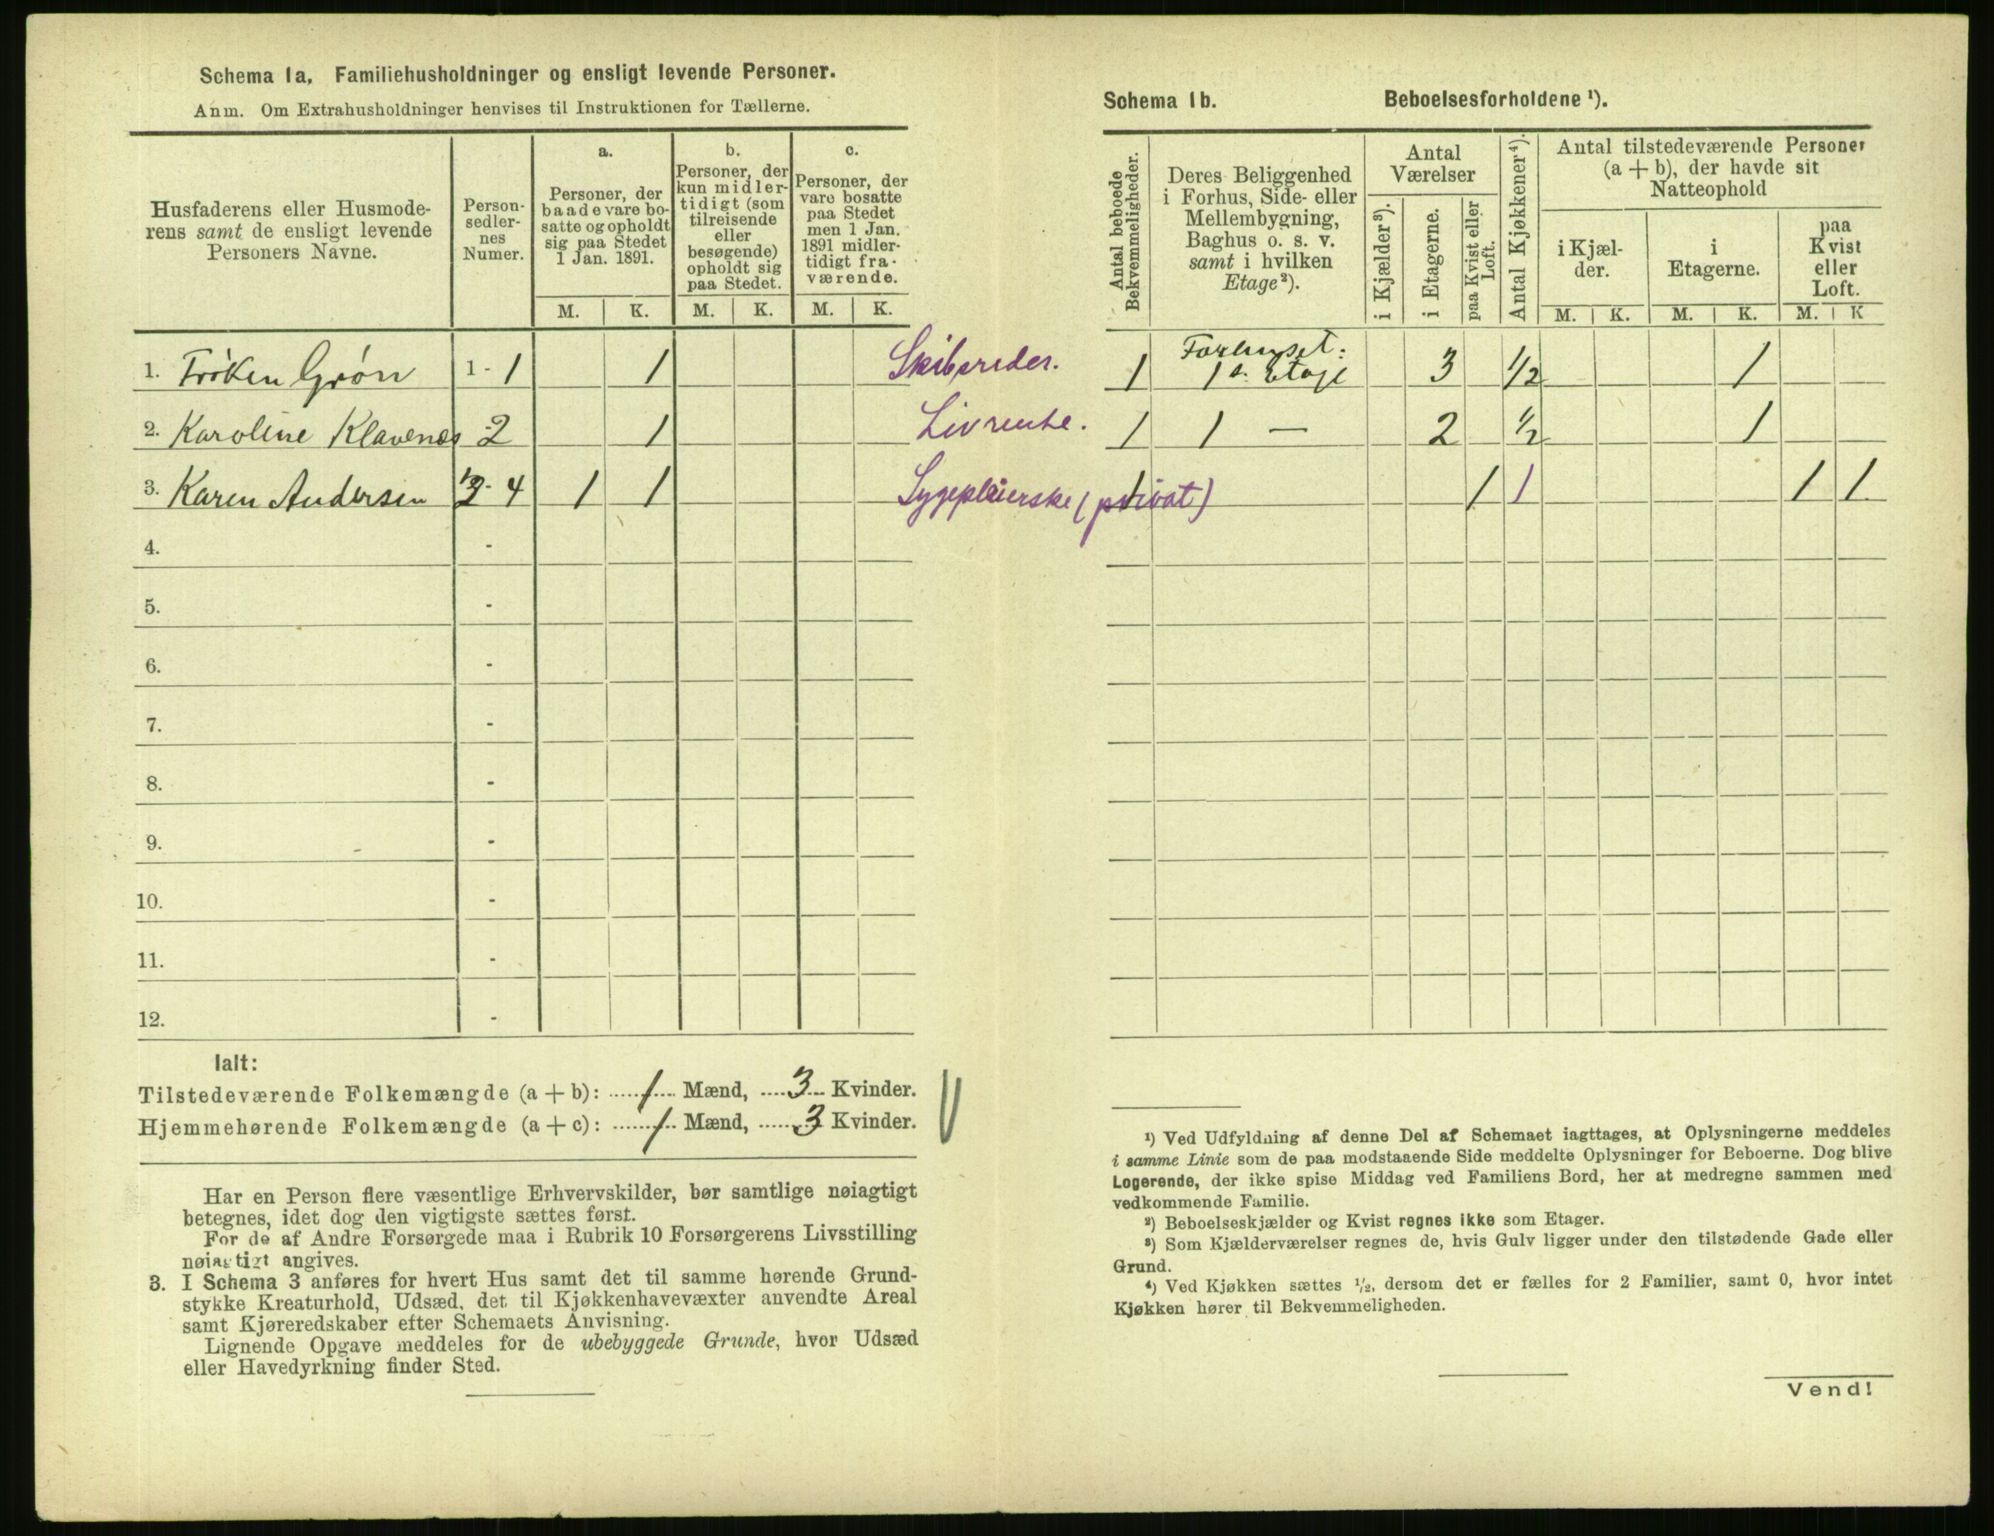 Schema 1a. Familiehusholdninger og ensligt levende Personer.
Anm. Om Extrahusholdninger henvises til Instruktionen for Tællerne.
Husfaderens eller Husmode-
rens samt de ensligt levende
Personers Navne.
Person-
sedler-
nes
Numer.
a.
Personer, der
baade vare bo-
satte og opholdt
sig paa Stedet
1 Jan. 1891.
b.
Personer, der
kun midler-
tidigt (som
tilreisende
eller
besøgende)
opholdt sig
paa Stedet.
c.
Personer, der
vare bosatte
paa Stedet
men 1 Jan.
1891 midler-
tidigt fra-
værende.
M. K. M. K. M. K.
1. Frøken Grøn 1 - 1 1 Skibsreder.
2. Karoline Klavenes -2 1 Livrente.
3. Karen Andersen - 4 1 1 Sygepleierske (privat)
4. -
5. -
6. -
7. -
8. -
9. -
10. -
11. -
12. -
Ialt:
Tilstedeværende Folkemængde (a + b): 1 Mænd, 3 Kvinder.
Hjemmehørende Folkemængde (a + c): 1 Mænd, 3 Kvinder.
Har en Person flere væsentlige Erhvervskilder, bør samtlige nøiagtigt
betegnes, idet dog den vigtigste sættes først.
For de af Andre Forsørgede maa i Rubrik 10 Forsørgerens Livsstilling
nøiagtigt angives.
3. I Schema 3 anføres for hvert Hus samt det til samme hørende Grund-
stykke Kreaturhold, Udsæd, det til Kjøkkenhavevæxter anvendte Areal
samt Kjøreredskaber efter Schemaets Anvisning.
Lignende Opgave meddeles for de ubebyggede Grunde, hvor Udsæd
eller Havedyrkning finder Sted.
Schema 1b. Beboelsesforholdene ¹).
Antal beboede
Bekvemmeligheder.
Deres Beliggenhed
i Forhus, Side- eller
Mellembygning,
Baghus o. s. v.
samt i hvilken
Etage²).
Antal
Værelser
i Kjælder³).
i Etagerne.
paa Kvist eller
Loft.
Antal Kjøkkener⁴).
Antal tilstedeværende Personer
(a + b), der havde sit
Natteophold
i Kjæl-
der.
i
Etagerne.
paa
Kvist
eller
Loft.
M. K. M. K. M. K
1 Forhuset: 1 s. Etage 3 1/2 1
1 1 — 2 1/2 1
1 1 1 1 1
¹) Ved Udfyldning af denne Del af Schemaet iagttages, at Oplysningerne meddeles
i samme Linie som de paa modstaaende Side meddelte Oplysninger for Beboerne. Dog blive
Logerende, der ikke spise Middag ved Familiens Bord, her at medregne sammen med
vedkommende Familie.
²) Beboelseskjælder og Kvist regnes ikke som Etager.
³) Som Kjælderværelser regnes de, hvis Gulv ligger under den tilstødende Gade eller
Grund.
⁴) Ved Kjøkken sættes ¹/₂, dersom det er fælles for 2 Familier, samt 0, hvor intet
Kjøkken hører til Bekvemmeligheden.
Vend!